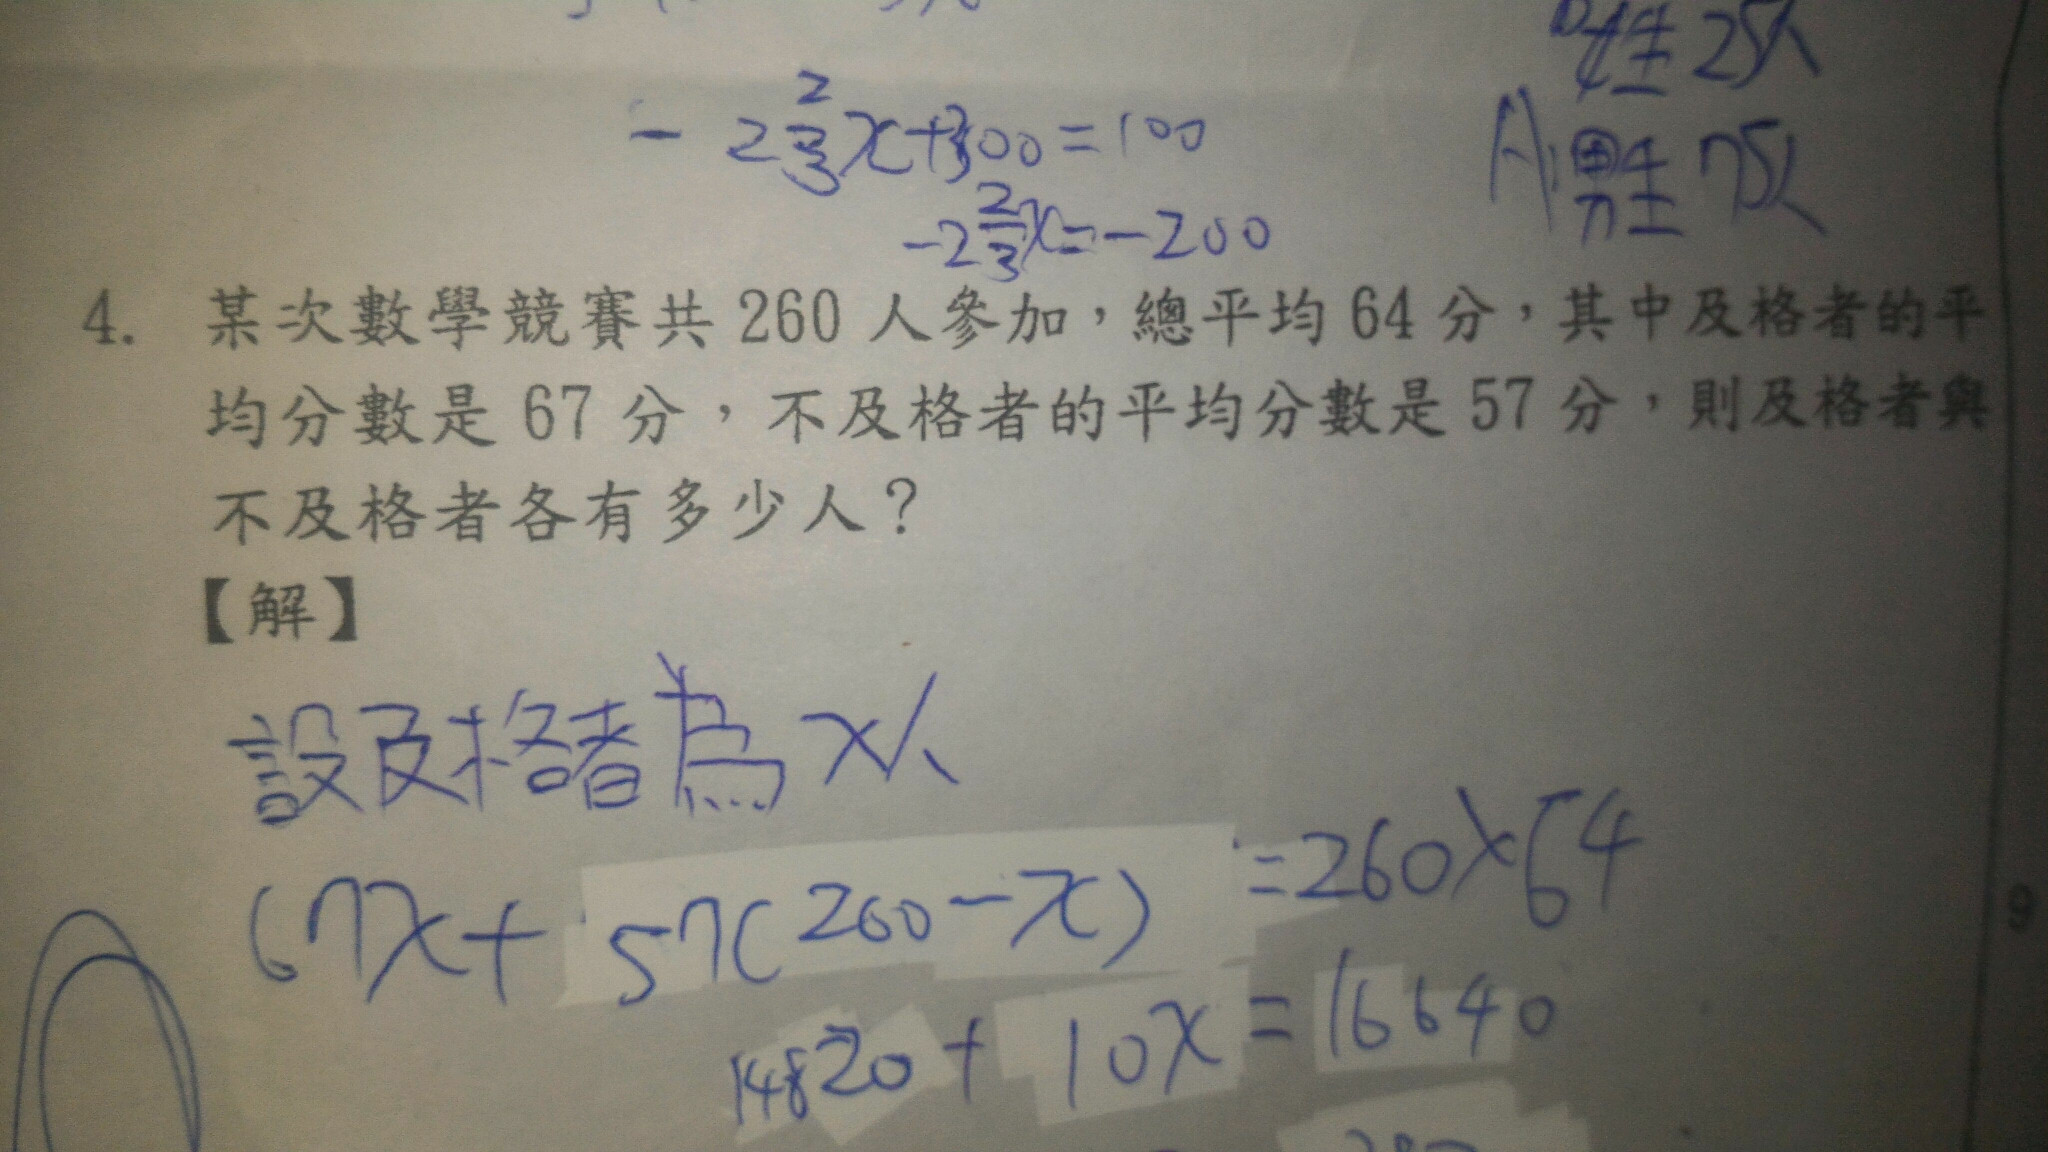 女生25人
- 2 2/3 x+300=100
A:男生75人
-2 2/3 x=-200
4. 某次數學競賽共 260 人參加，總平均 64 分，其中及格者的平
均分數是 67 分，不及格者的平均分數是 57 分，則及格者與
不及格者各有多少人？
【解】
設及格者為x人
67x+57(260-x)=260×64
14820+10x=16640
9